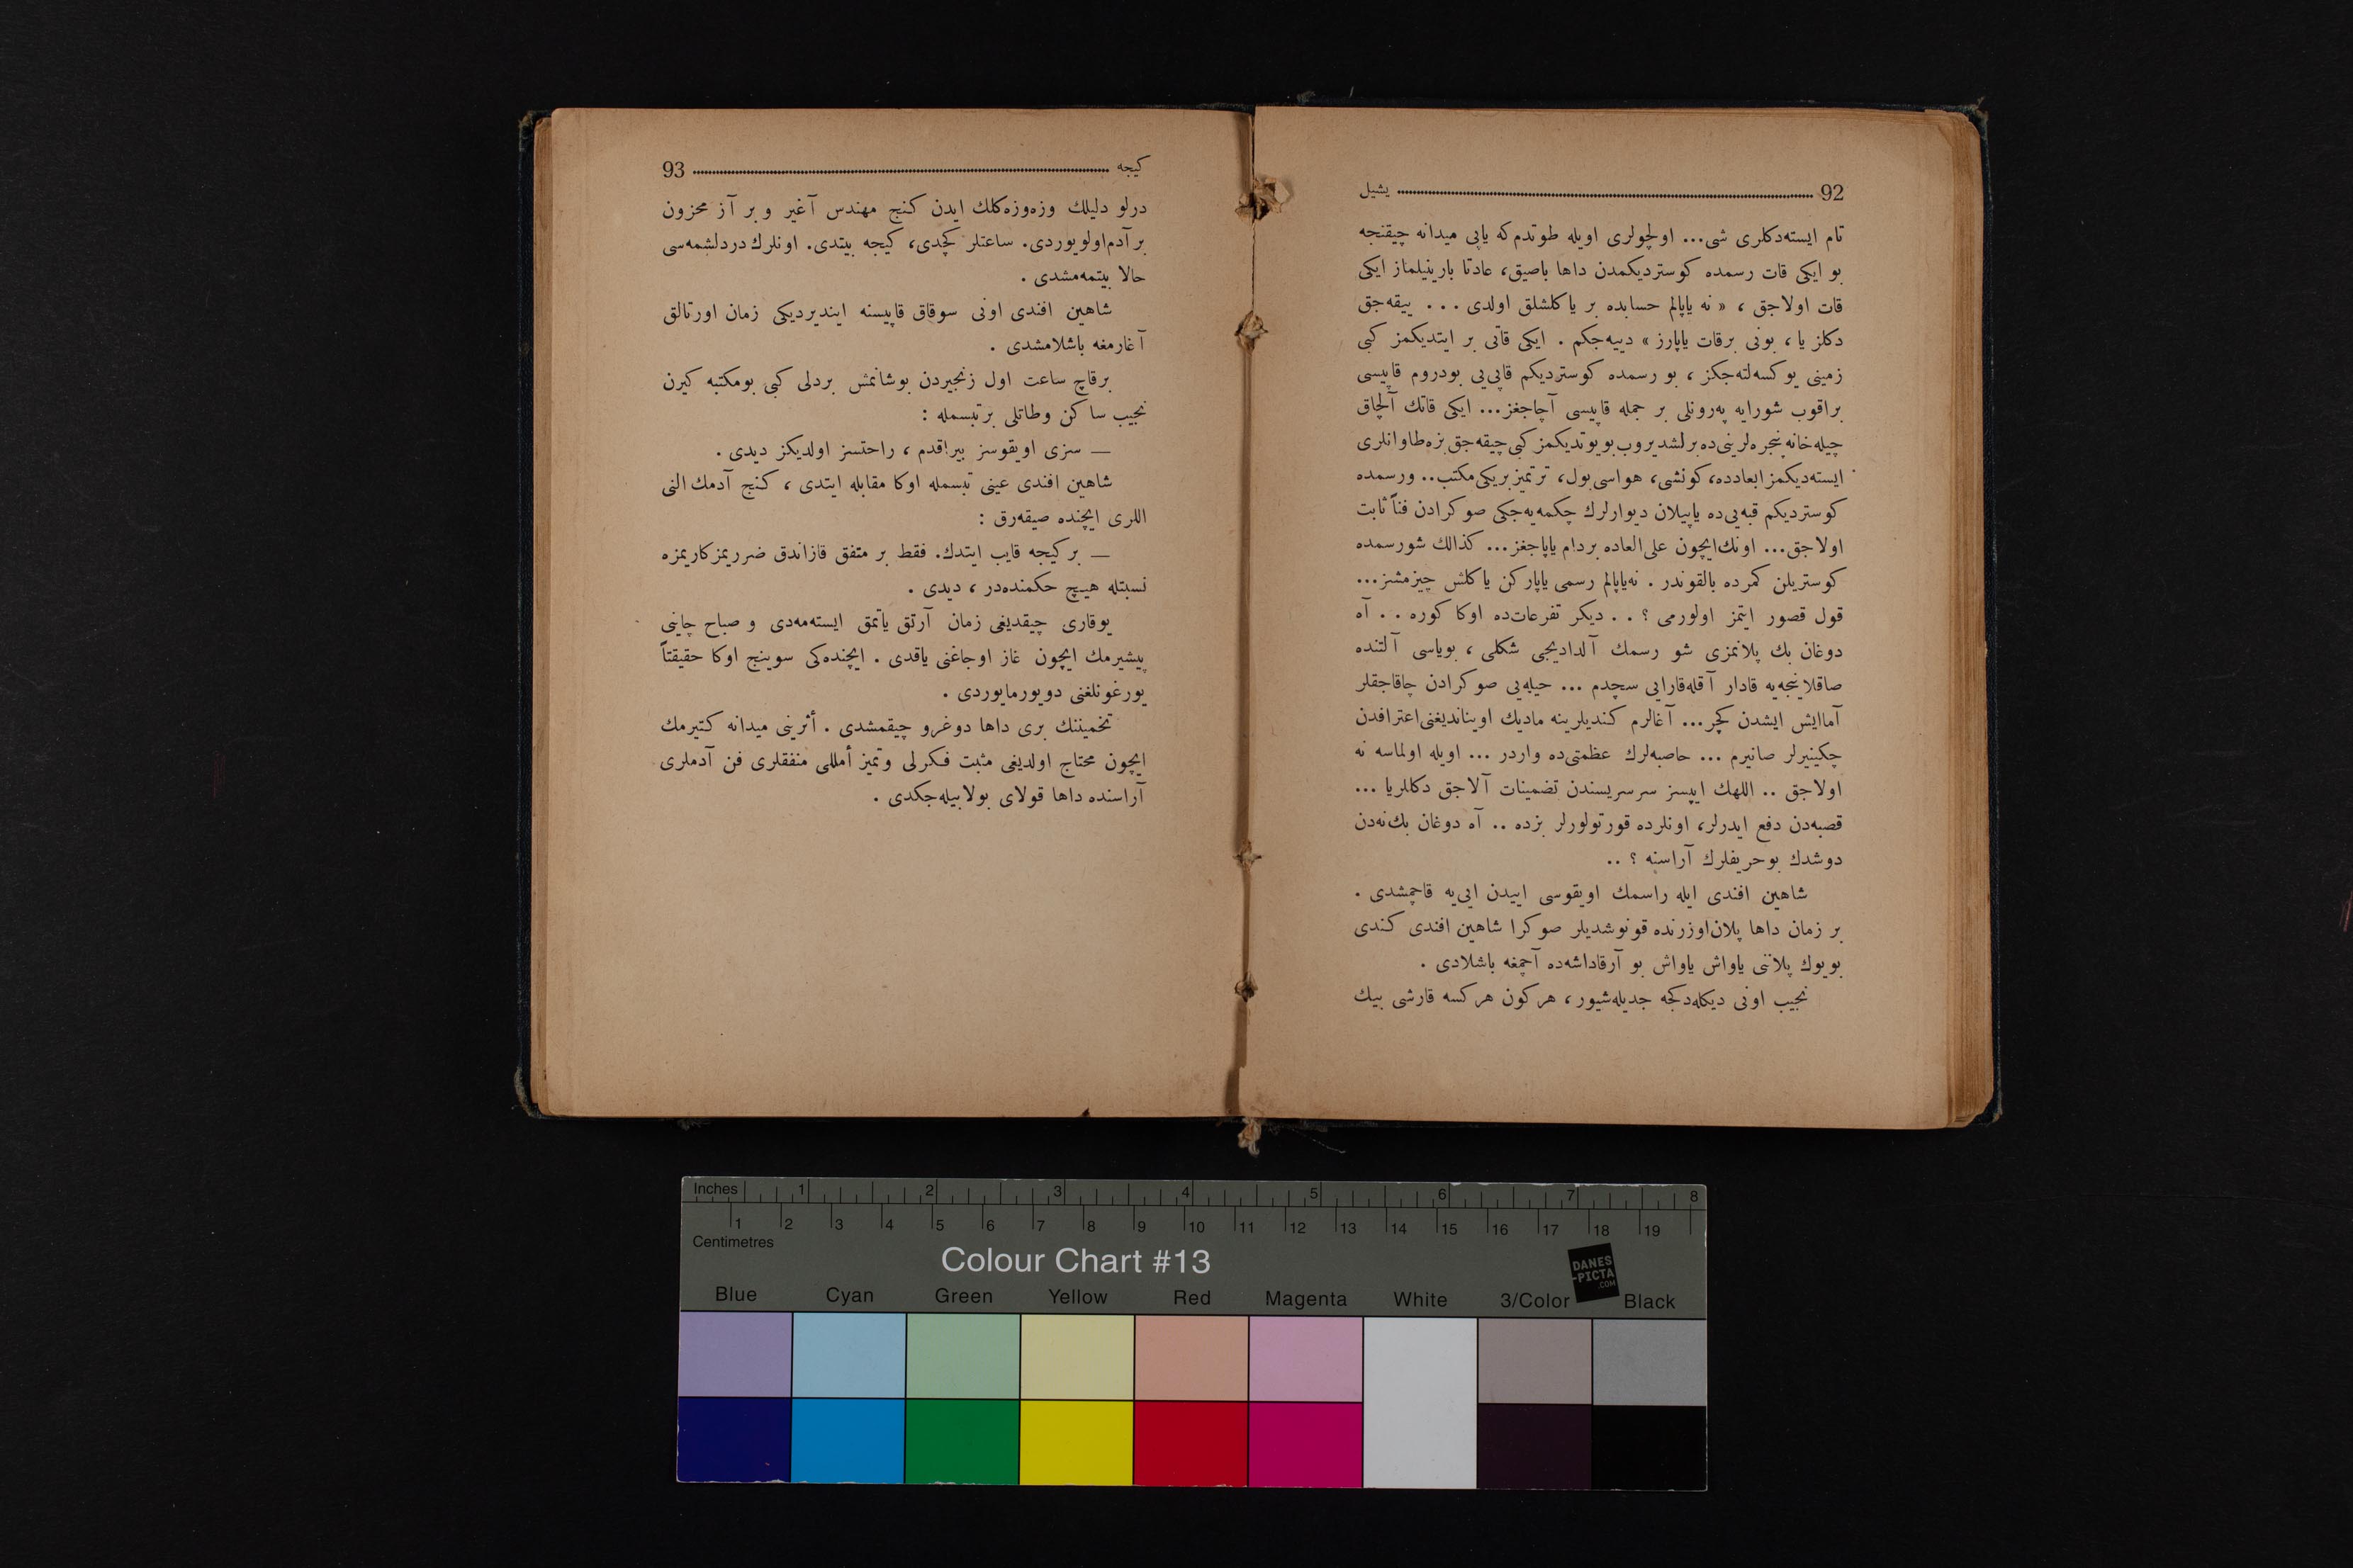 92 يشيل
تام ايسته‌دكلرى شى... اولچولرى اويله طوتدم‌كه ياپى ميدانه چيقنجه
بو ايكى قات رسمده كوسترديكمدن داها باصيق، عادتا بارينيلماز ايكى
قات اولاجق ، « نه ياپالم حسابده بر ياكلشلق اولدى ... ييقه‌جق
دكلز يا ، بونى برقات ياپارز » دييه‌جكم . ايكى قاتى بر ايتديكمز كبى
زمينى يوكسه‌لته‌جكز ، بو رسمده كوسترديكم قاپى‌يى بودروم قاپيسى
براقوب شورايه په‌رونلى بر جمله قاپيسى آچاجغز... ايكى قاتك آلچاق
چيله‌خانه پنجره‌لرينى‌ده برلشديروب بويوتديكمز كبى چيقه‌جق بزه طاوانلرى
ايسته‌ديكمز ابعادده، كونشى، هواسى بول، ترتميز بر يكى مكتب.. ورسمده
كوسترديكم قبه‌يى‌ده ياپيلان ديوارلرك چكمه‌يه‌جكى صوكرادن فناً ثابت
اولاجق... اونك‌ايچون على‌العاده بردام ياپاجغز... كذالك شورسمده
كوستريلن كمرده بالقوندر . نه‌ياپالم رسمى ياپاركن ياكلش چيزمشز...
قول قصور ايتمز اولورمى ؟ .. ديكر تفرعات‌ده اوكا كوره .. آه
دوغان بك پلانمزى شو رسمك آلداديجى شكلى ، بوياسى آلتنده
صاقلاينجه‌يه قادار آقله‌قارايى سچدم ... حيله‌يى صوكرادن چاقاجقلر
آماايش ايشدن كچر... آغالرم كنديلرينه ماديك اويناندیغنى‌اعترافدن
چكينيرلر صانيرم ... حاصبه‌لرك عظمتى‌ده واردر ... اويله اولماسه نه
اولاجق .. اللهك ايپسز سرسريسندن تضمينات آلاجق دكللريا ...
قصبه‌دن دفع ايدرلر، اونلرده قورتولورلر بزده .. آه دوغان بك‌نه‌دن
دوشدك بوحريفلرك آراسنه ؟ ..
شاهين افندى ايله راسمك اويقوسى اييدن ايى‌يه قاچمشدى .
بر زمان داها پلان‌اوزرنده قونوشديلر صوكرا شاهين افندى كندى
بويوك پلاننى ياواش ياواش بو آرقاداشه‌ده آچمغه باشلادى .
نجيب اونى ديكله‌دكجه جديله‌شيور، هركون هركسه قارشى بيك
كيجه 93
درلو دليلك وزه‌وزه‌كلك ايدن كنج مهندس آغير و بر آز محزون
بر آدم‌اولويوردى. ساعتلر كچدى، كيجه بيتدى. اونلرك دردلشمه‌سى
حالا بيتمه‌مشدى .
شاهين افندى اونى سوقاق قاپيسنه اينديرديكى زمان اورتالق
آغارمغه باشلامشدى .
برقاچ ساعت اول زنجيردن بوشانمش بردلى كبى بومكتبه كيرن
نجيب ساكن وطاتلى برتبسمله :
— سزى اويقوسز بيراقدم ، راحتسز اولديكز ديدى .
شاهين افندى عينى تبسمله اوكا مقابله ايتدى ، كنج آدمك النى
اللرى ايچنده صيقه‌رق :
— بركيجه قايب ايتدك. فقط بر متفق قازاندق ضرريمز كاريمزه
نسبتله هيچ حكمنده‌در ، ديدى .
يوقارى چيقديغى زمان آرتق ياتمق ايسته‌مه‌دى و صباح چاينى
پيشيرمك ايچون غاز اوجاغنى ياقدى . ايچنده‌كى سوينج اوكا حقيقتاً
يورغونلغنى دويورمايوردى .
تخميننك برى داها دوغرو چيقمشدى . أثرينى ميدانه كتيرمك
ايچون محتاج اولديغى مثبت فكرلى وتميز أمللى متفقلرى فن آدملرى
آراسنده داها قولاى بولابيله‌جكدى .
Inches 1 2 3 4 5 6 7 8
1 2 3 4 5 6 7 8 9 10 11 12 13 14 15 16 17 18 19
Centimetres
Colour Chart #13
DANES
-PICTA
.COM
Blue Cyan Green Yellow Red Magenta White 3/Color Black